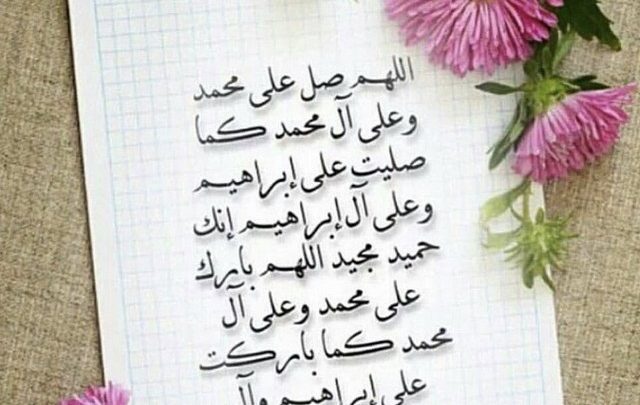 اللهم صل على محمد
وعلى آل محمد كما
صليت على إبراهيم
وعلى آل إبراهيم إنك
حميد مجيد اللهم بارك
على محمد وعلى آل
محمد كما باركت
على إبراهيم وآل